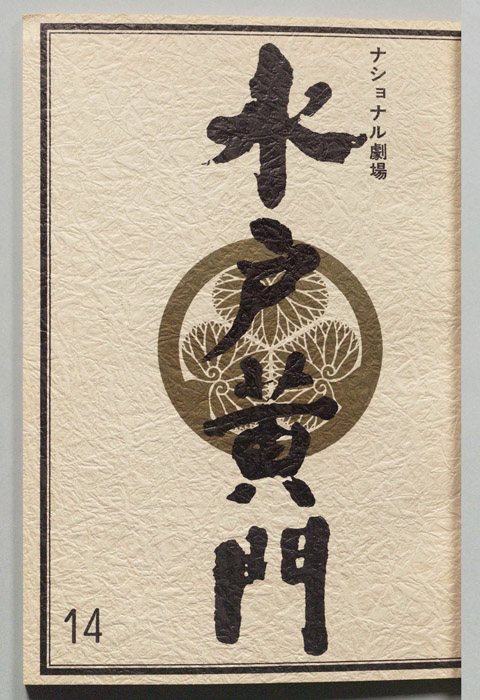 ナショナル劇場
水戸黄門
14